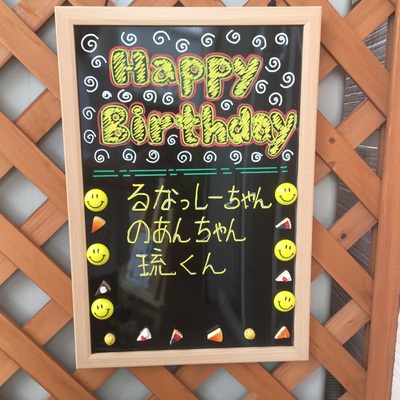 Happy
Birthday
るなっしーちゃん
のあんちゃん
琉くん